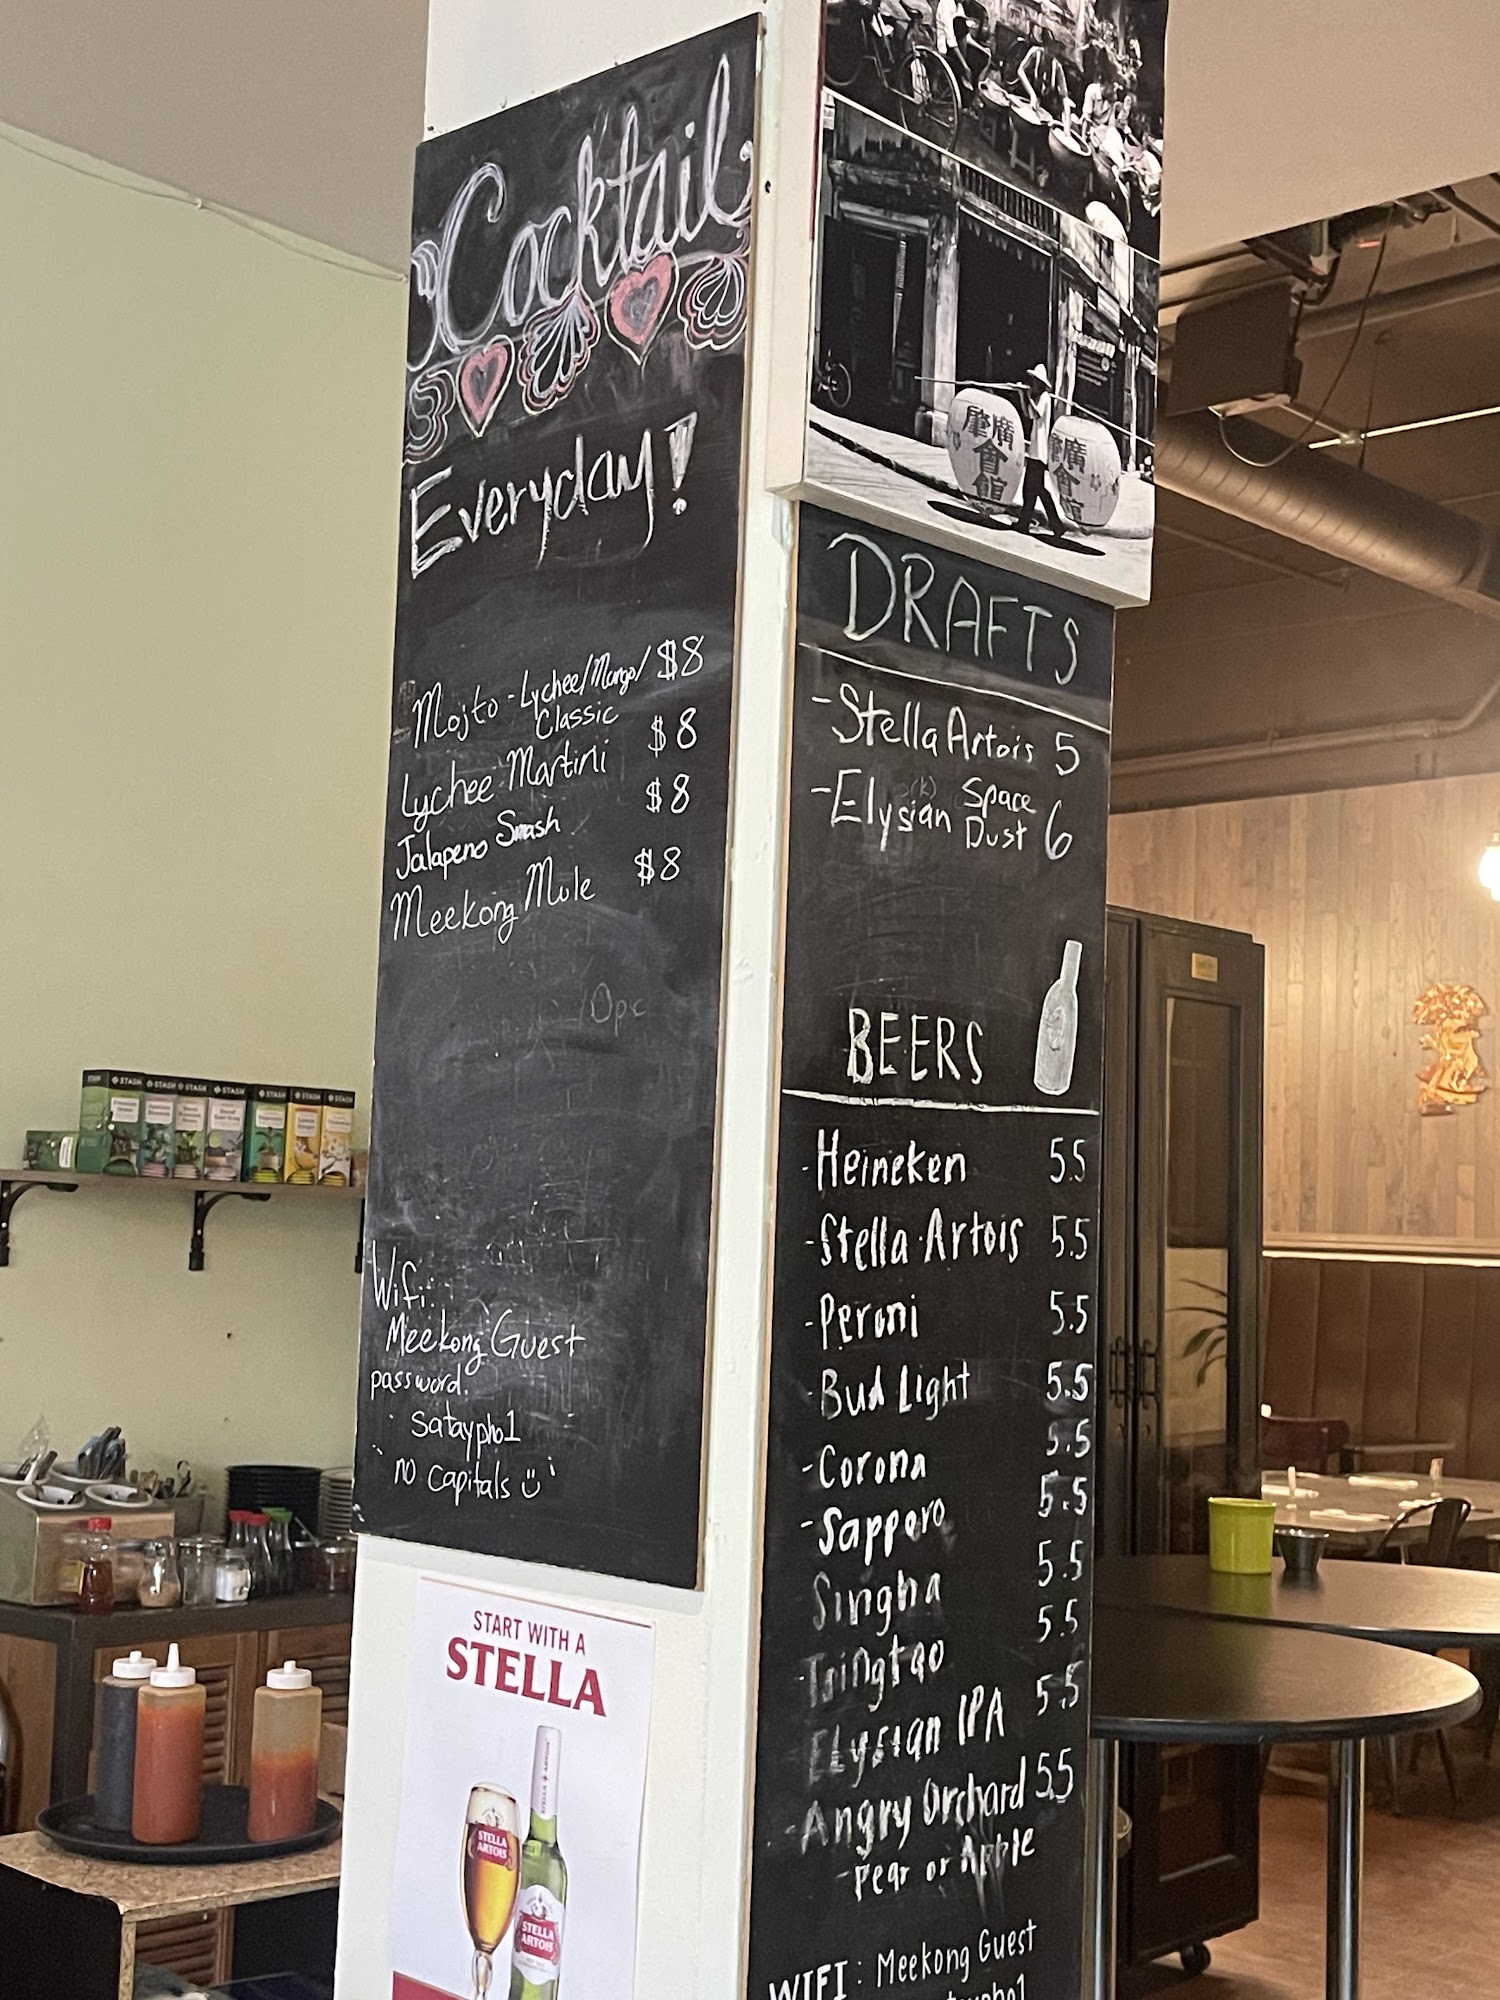 Cocktail
Everyday!
Mojto - Lychee/Mango/ $8
Classic
Lychee Martini $8
Jalapeno Smash $8
Meekong Mule $8
Wifi:
Meekong Guest
password.
sataypho1
no capitals
START WITH A
STELLA
STELLA ARTOIS
STELLA
ARTOIS
STELLA
ARTOIS
肇 廣
會
館
肇 廣
會
館
DRAFTS
- Stella Artois 5
- Elysian Space Dust 6
BEERS
- Heineken 5.5
- Stella Artois 5.5
- Peroni 5.5
- Bud Light 5.5
- Corona 5.5
- Sapporo 5.5
Singha 5.5
- Tsingtao 5.5
Elysian IPA 5.5
- Angry Orchard 5.5
- Pear or Apple
WIFI: Meekong Guest
STASH
STASH
STASH
STASH
STASH
STASH
STASH